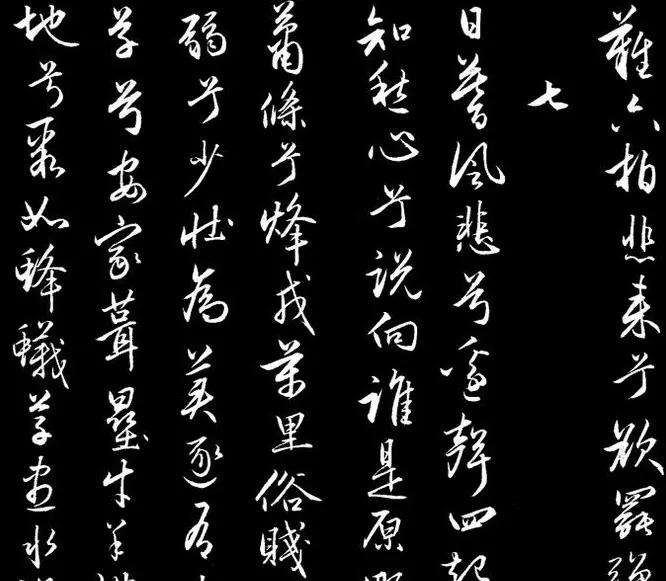 難六拍悲来兮欲罷彈
七
日暮風悲兮邊聲四起
知愁心兮説向誰是原
蕭條兮烽戍萬里俗賤
弱兮少壮為美逐有
草兮安家葺壘牛羊
地兮聚如蜂蟻草盡水